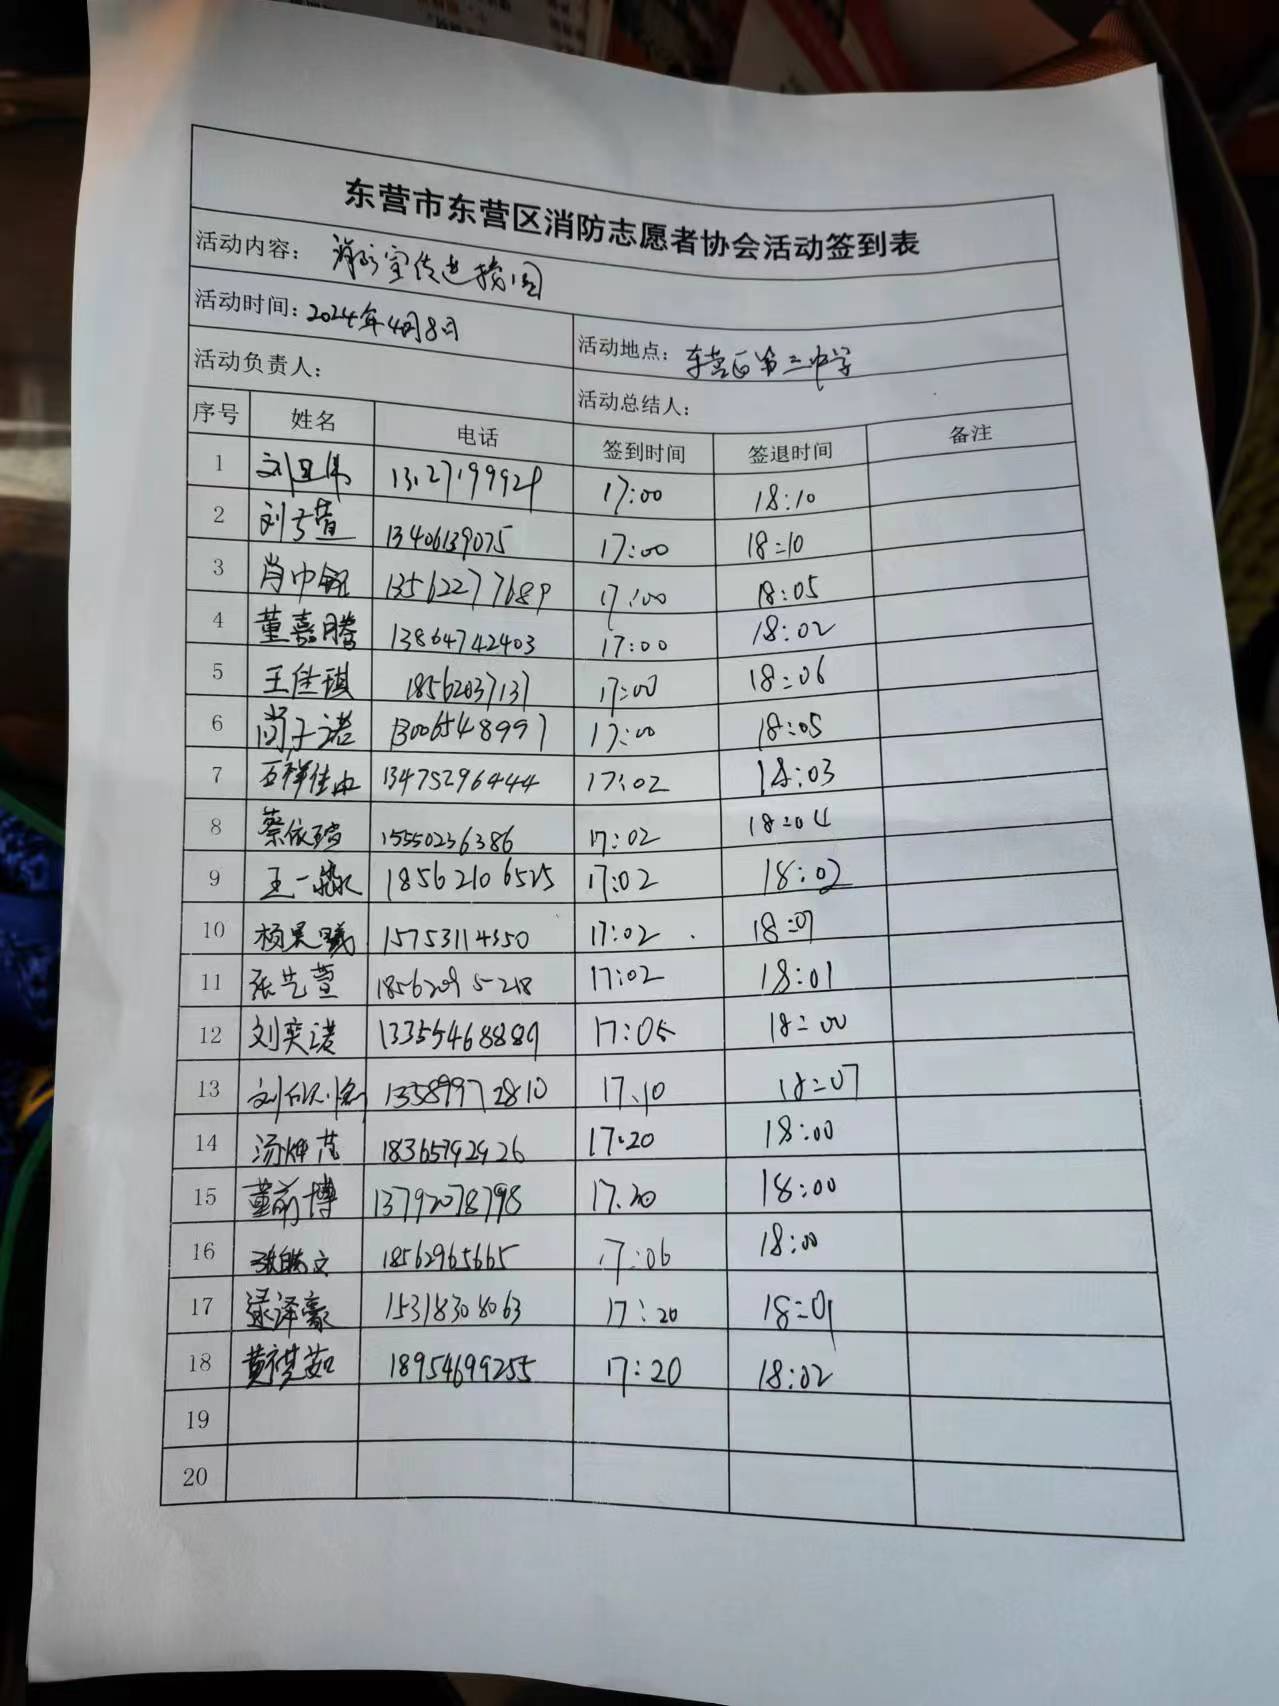 东营市东营区消防志愿者协会活动签到表
活动内容： 消防宣传进校园
活动时间：2024年4月8日 活动地点：东营区第三中学
活动负责人： 活动总结人：
序号 姓名 电话 签到时间 签退时间 备注
1 17:00 18:10
2 13406139075 17:00 18:10
3 13562277689 17:00 18:05
4 董嘉腾 13864742403 17:00 18:02
5 王佳琪 18562037137 17:00 18:06
6 尚子诺 13006548997 17:00 18:05
7 13475296444 17:02 18:03
8 蔡依瑶 15550236386 17:02 18:04
9 18562106525 17:02 18:02
10 杨昊曦 15753114350 17:02 18:07
11 张艺萱 18562095218 17:02 18:01
12 刘奕诺 13355468889 17:05 18:00
13 13589972810 17:10 18:07
14 18365792926 17:20 18:00
15 董前博 13792078798 17:20 18:00
16 18562965665 17:06 18:00
17 逯泽豪 15318308063 17:20 18:01
18 黄祺茹 18954699255 17:20 18:02
19
20